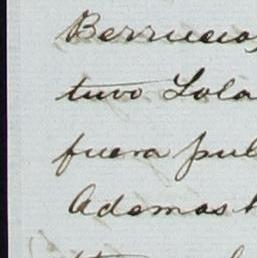 Berrueco,
tuvo Lola
fuera pul
Ademas